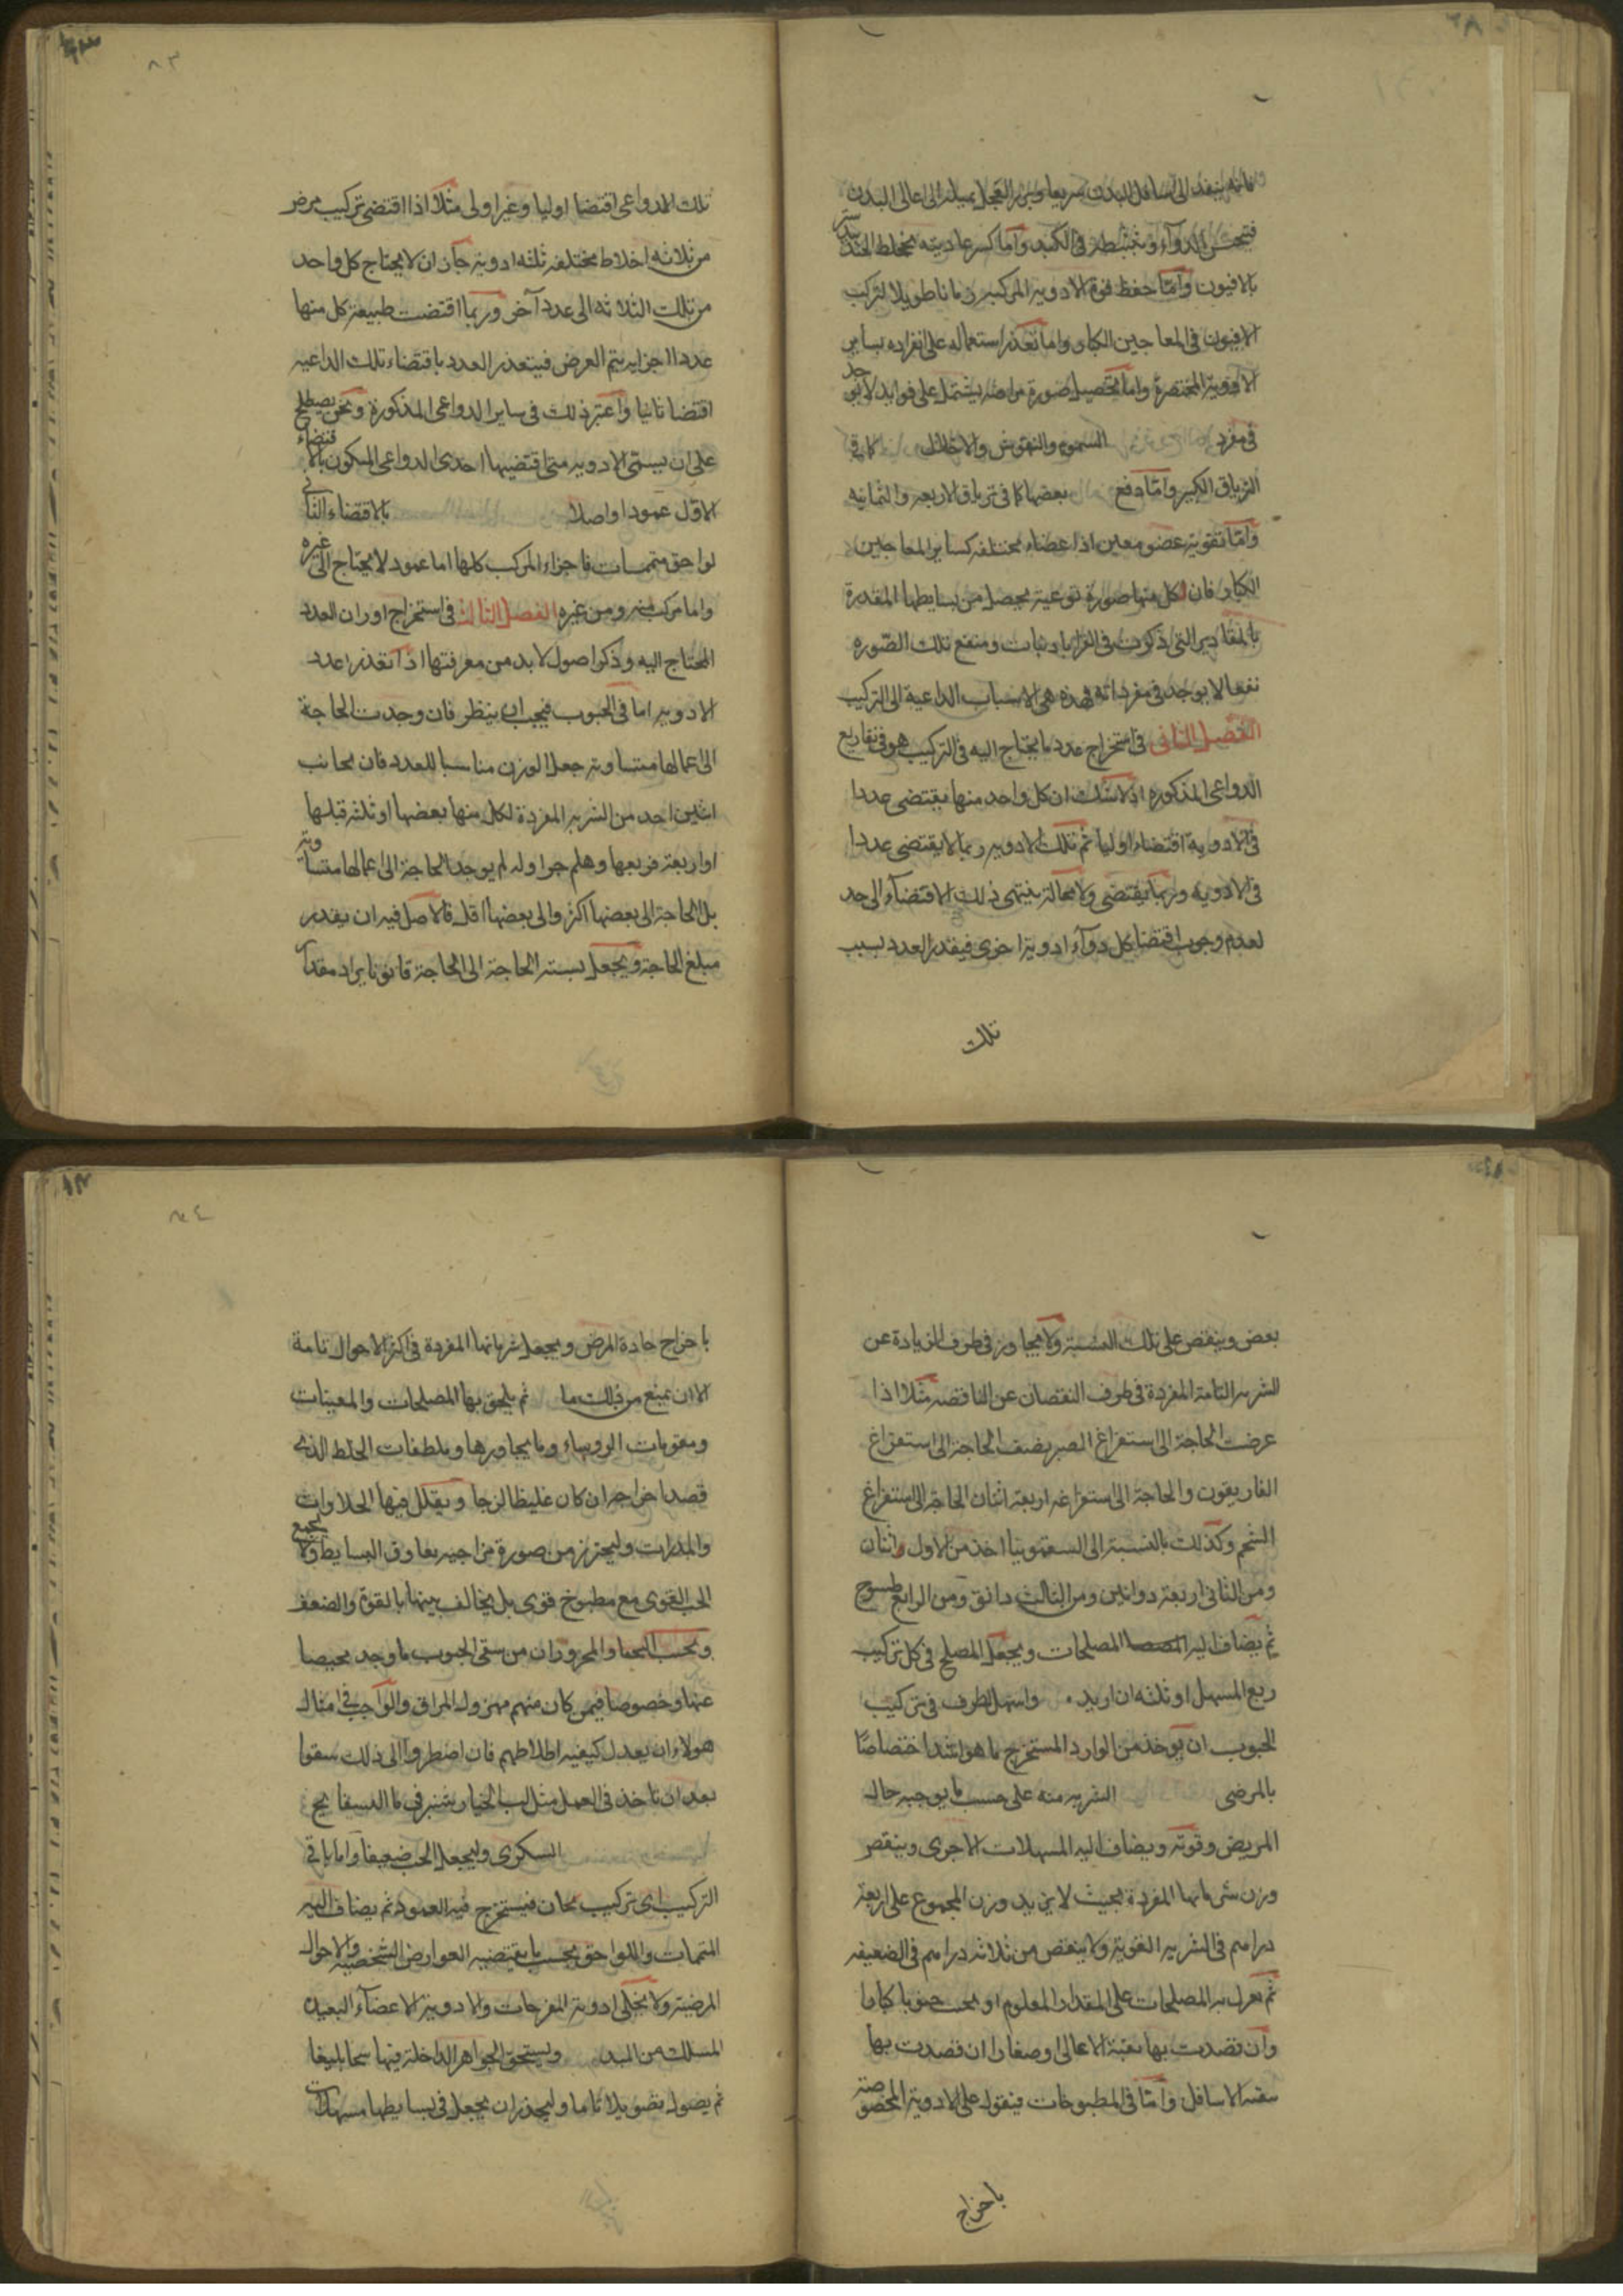 فانه ينفذ الى اسافل البدن سريعا وبزر الفجل يميله الى اعالى البدن
فيتحبس الدواء ويتثبطه فى الكبد واما كسر عاديته كخلط الجندبيدستر
بالافيون واما حفظ قوة الادوية المركبة زمانا طويلا لتركيب
الافيون فى المعاجين الكبار واما تعذر استعماله على انفراده بساير
الادوية المختصرة واما تحصيل صورة مزاجية يشتمل على فوايد لا توجد
فى مفرد السموم والنهوش كما فى
الترياق الكبير واما دفع بعضها كما فى ترياق الاربعه والثمانيه
واما تقوية عضو معين اذا عضاء مختلفه كساير المعاجين
الكبار فان لكل منها صورة نوعية يحصل من بسايطها المقدرة
بالمقادير التى ذكرت فى القرابادينات ومنفع تلك الصوره
نفعا لا يوجد فى مفرداته فهذه هى الاسباب الداعية الى التركيب
الفصل الثانى فى استخراج عدد ما يحتاج اليه فى التركيب هو فى تفاريع
الدواعى المذكوره اذ لا شك ان كل واحد منها يقتضى عددا
فى الادوية اقتضاء اوليا ثم تلك الادويه ربما لا يقتضى عددا
فى الادويه وربما يقتضى ولا محالة ينتهى ذلك الاقتضاء الى حد
لعدم وجوب اقتضا كل دواء ادوية اخرى فيقدر العدد بسبب
تلك
٨٣
تلك الدواعى اقتضا اوليا وغير اولى مثلا اذا اقتضى تركيب مرض
من ثلاثه اخلاط مختلفه ثلثه ادوية جاز ان لا يحتاج كل واحد
من تلك الثلاثه الى عدد آخر وربما اقتضت طبيعة كل منها
عددا اجزايه يتم العرض فيتعذر العدد باقتضاء تلك الداعيه
اقتضا ثانيا واعتبر ذلك فى ساير الدواعى المذكورة ونحن نصطلح
على ان يسمى الادويه متى اقتضيها احدى الدواعى المكون بالاقتضاء
الاول عمودا واصلا بالاقتضاء الثانى
لواحق متممات فاجزاء المركب كلها اما عمود لا يحتاج الى غيره
واما مركب منه ومن غيره الفصل الثالث فى استخراج اوزان العدد
المحتاج اليه وذكر اصول لا بد من معرفتها اذا تقدر عدد
الادويه اما فى الحبوب فيجب ان ينظر فان وجدت الحاجة
الى اعمالها متساوية جعل الوزن مناسبا للعدد فان كانت
اثنين اخد من الشربه المفردة لكل منها بعضها او ثلثه قبلها
او اربعة فربعها وهلم جرا وان لم يوجد الحاجة الى اعمالها متساوية
بل الحاجة الى بعضها اكثر والى بعضها اقل فالاصل فيه ان يقدر
مبلغ الحاجة ويجعل بسبته الحاجة الى الحاجة قانونا يراد مقدار
بعض وينقص على تلك النسبة ولا يجاوز فى طرف الزيادة عن
الشربه التامة المفردة فى طرف النقصان عن الناقصه مثلا اذا
عرضت الحاجة الى استفراغ الصبر بضعف الحاجة الى استفراغ
الغاريقون والحاجة الى استفراغه اربعة اثنان الحاجة الى استفراغ
الشحم وكذلك بالنسبة الى السقمونيا اخذ من الاول واثنان
ومن الثانى اربعة دوانيق ومن الثالث دانق ومن الرابع طسوج
ثم يضاف اليه المصلحات ويجعل المصلح فى كل تركيب
ربع المسهل او ثلثه ان اريد واسهل الطرف فى تركيب
الحبوب ان يوخذ من الوارد المستخرج ما هو اشد اختصاصا
بالمرضى الشربه منه على حسب ما يوجبه حال
المريض وقوته ويضاف اليه المسهلات الاخرى وينقص
وزن شرباتها المفردة بحيث لا يزيد وزن المجموع على اربعة
دراهم فى الشربه القوية ولا ينقص من ثلاثه دراهم فى الضعيفه
ثم المصلحات على المقدار المعلوم او حبوبا كبارا
وان قصدت بها تنقية الاعالى او صغارا ان قصدت بها
الاسافل واما فى المطبوخات فينقول على الادوية المخصوصة
باخراج
٨٤
باخراج حادة المرض ويجعل شرباتها المفردة فى اكثر الاحوال تامة
الا ان يمنع من ذلك ما ثم يلحق بها المصلحات والمعينات
ومقويات الروساء وما يجاورها وملطفات الخلط الذى
قصد اخراجه ان كان غليظا لزجا ويقلل فيها الحلاوات
والمدرات وليحترز من صورة مزاجيه يعاوق البسايط ولا يجمع
الحب القوى مع مطبوخ قوى بل يخالف بينها بالقوة والضعف
المحرورين من سقى الحبوب ما وجد محيصا
عنها وخصوصا فيمن كان منهم مهزول المراق والواجب فى امثال
هولاء ان يعدل كيفيه اطلاطهم فان اضطر والى ذلك سقوا
بعد ان تاخذ فى العمل مثل لب الخيارشنبر فى ما البسفايج
السكرى وليجعل الحب ضعيفا واما باقى
التركيب اى تركيب كان فيستخرج فيه العمود ثم يضاف اليه
المتممات واللواحق بحسب ما يقتضيه العوارض الشخصيه والاحوال
المرضية ولا يخلى ادوية المفرحات والادوية الاعضاء البعيده
المسلك من المبد ويستحق الجواهر الداخلة فيها سحقا بليغا
ثم يصول تصويلا تاما وليحذر ان يجعل فى بسايطها مسهلات